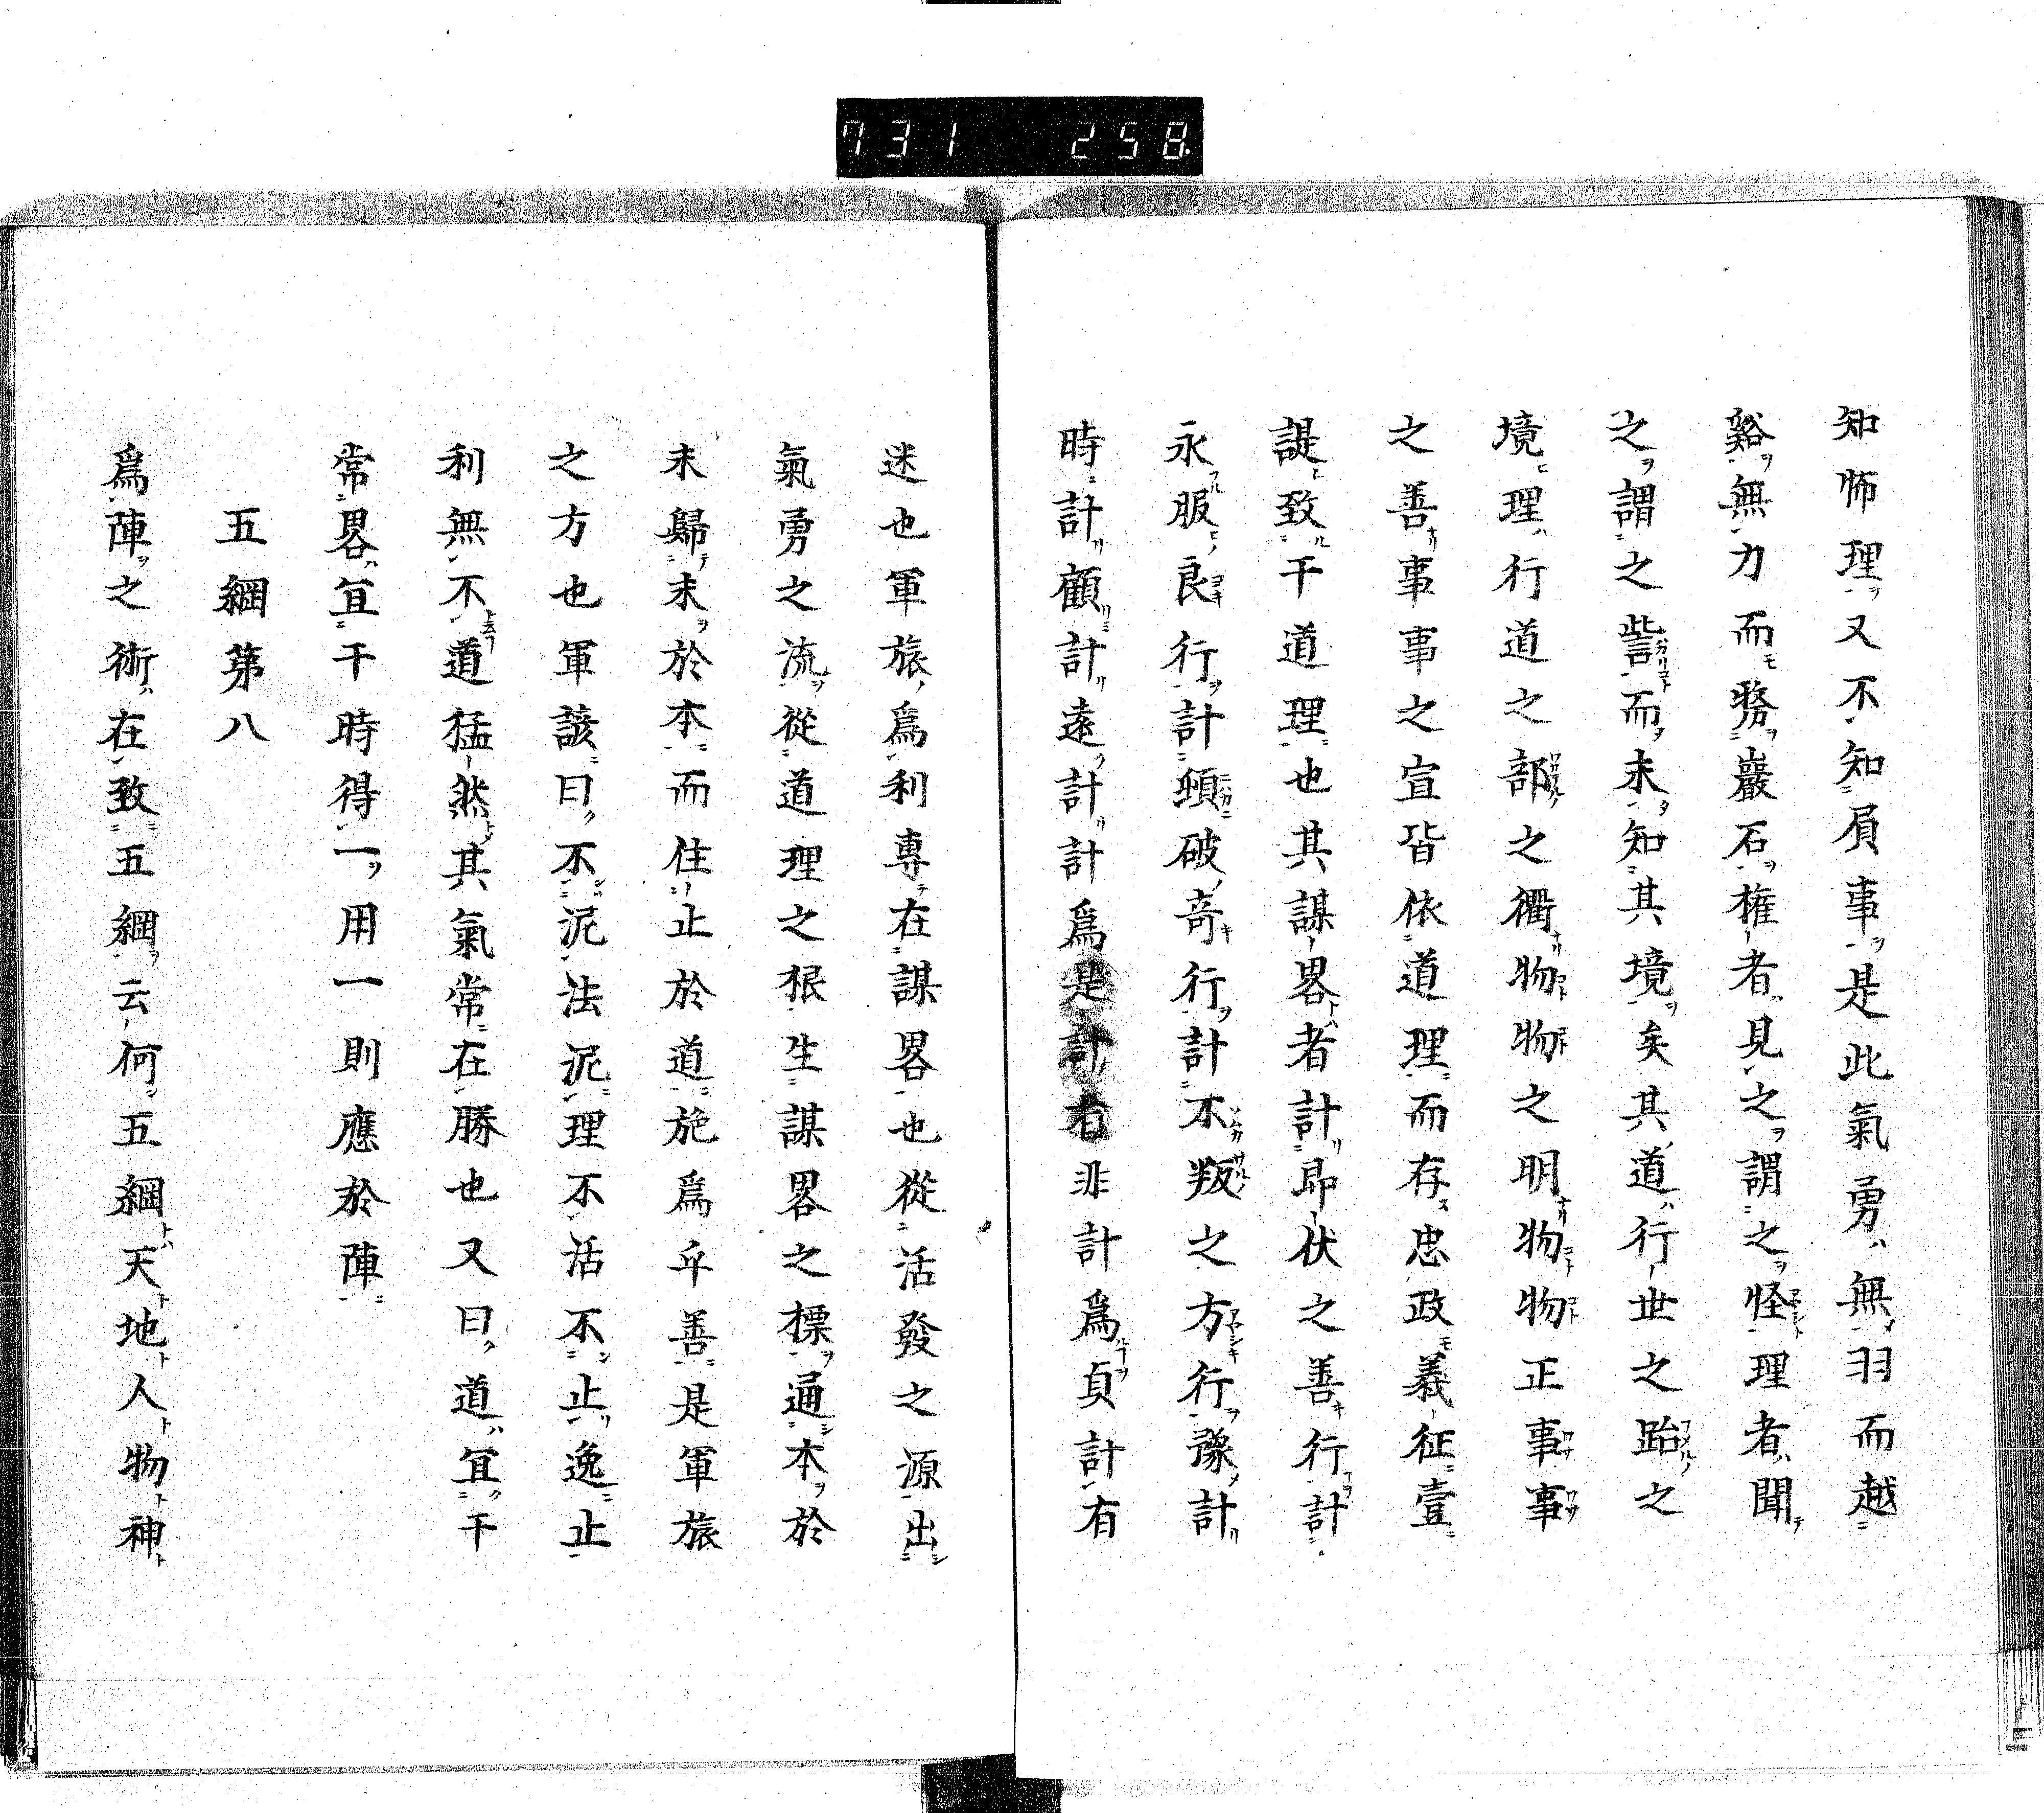 731 258
知怖理又不知屓事是此氣勇無羽而越
谿無力而務巖石權者見之謂之怪理者聞
之謂之訾而未知其境矣其道行世之跆之
境理行道之部之衢物物之明物物正事事
之善事事之宜皆依道理而存忠政義征壹
諟致干道理也其謀畧者計即伏之善行計
永服良行計頓破奇行計不叛之方行豫計
時計顧計遠計計爲是計有非計爲貞計有
迷也軍旅爲利專在謀畧也從活發之源出
氣勇之流從道理之根生謀畧之標通本於
末歸末於本而住止於道施爲乎善是軍旅
之方也軍談曰不泥法泥理不活不止逸止
利無不道猛然其氣常在勝也又曰道宜干
常畧宜干時得一用一則應於陣
五綱第八
爲陣之術在致五綱云何五綱天地人物神